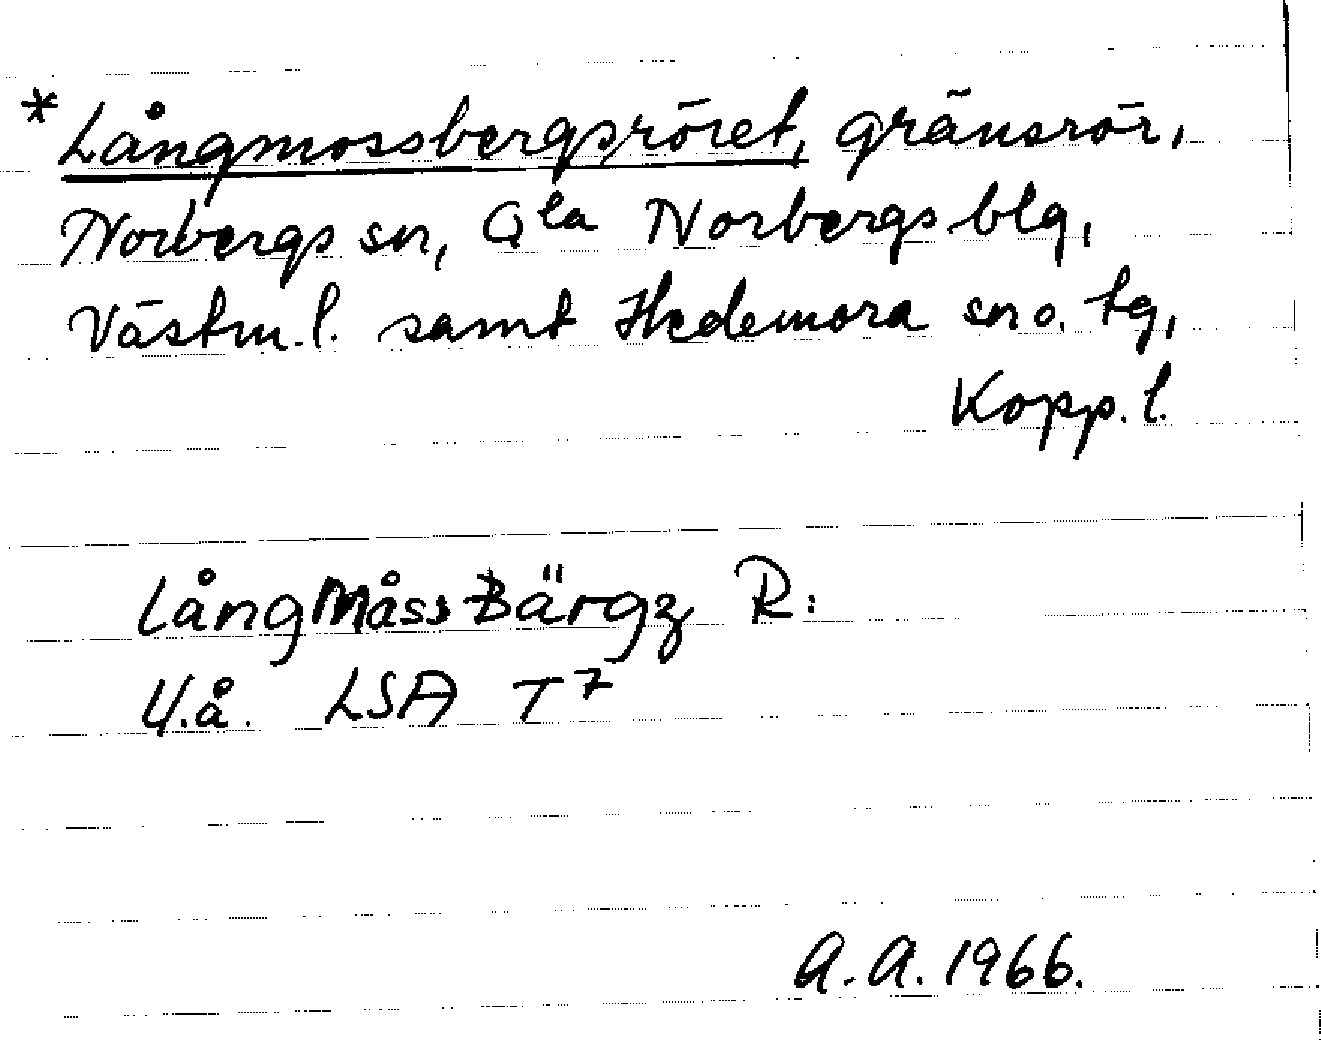 *Långmossbergsröret, gränsrör,
Norbergs sn, Gla Norbergs blg,
Västm.l. samt Hedemora sn o. tg,
Kopp.l.
Lång Måss Bärgz R:
U.å. LSA T7
A.A. 1966.